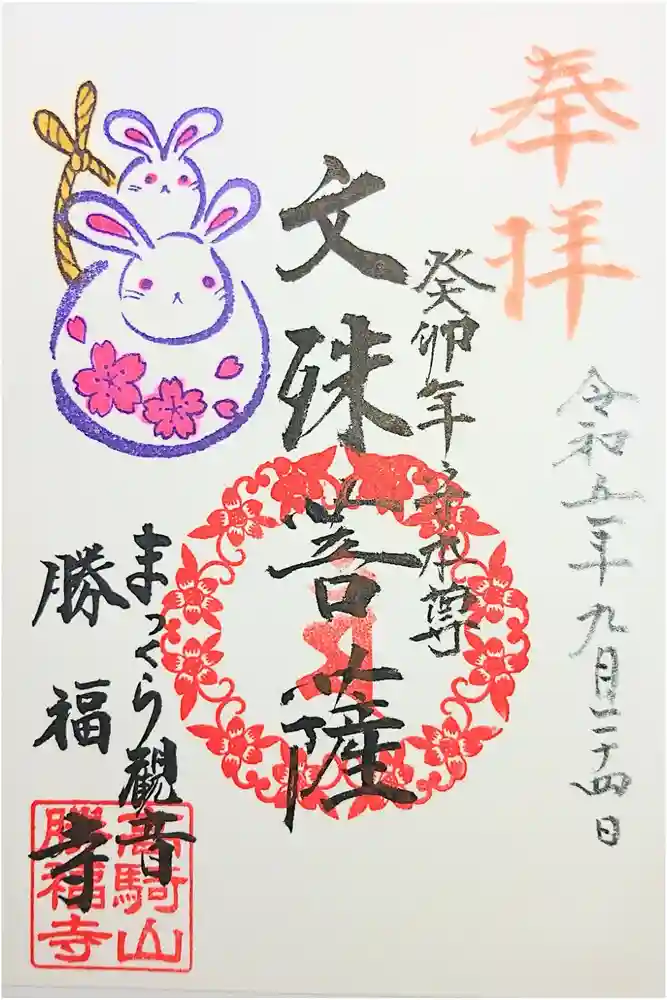 奉拝
令和五年九月二十四日
癸卯年守本尊
文殊菩薩
まっくら観音
勝福寺
騎山
勝福寺